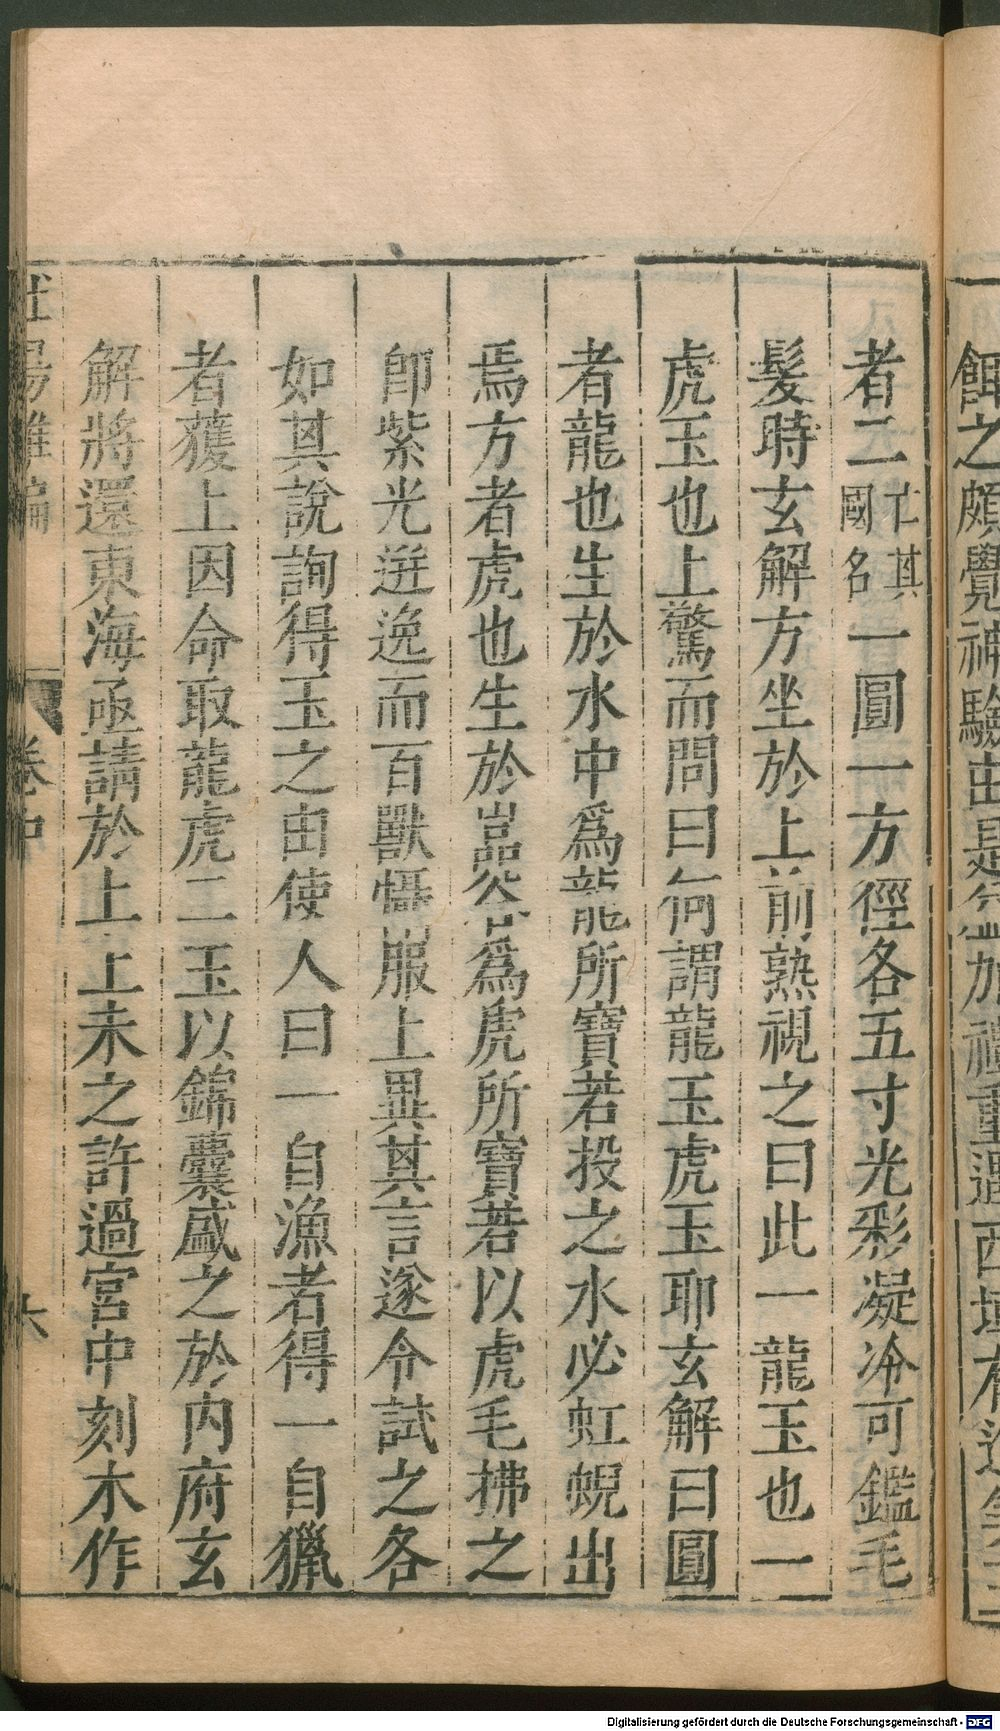 餌之頗覺神驗由是益加禮重遇西域有進美玉
者二仁其國名一圓一方徑各五寸光彩凝冷可鑑毛
髮時玄解方坐於上前熟視之曰此一龍玉也一
虎玉也上驚而問曰何謂龍玉虎玉耶玄解曰圓
者龍也生於水中爲龍所寶若投之水必虹蜺出
焉方者虎也生於嵓谷爲虎所寶若以虎毛拂之
卽紫光迸逸而百獸懾服上異其言遂令試之各
如其說詢得玉之由使人曰一自漁者得一自獵
者獲上因命取龍虎二玉以錦囊盛之於内府玄
解將還東海亟請於上上未之許過宮中刻木作
杜陽雜編 卷中 六
Digitalisierung gefördert durch die Deutsche Forschungsgemeinschaft - DFG